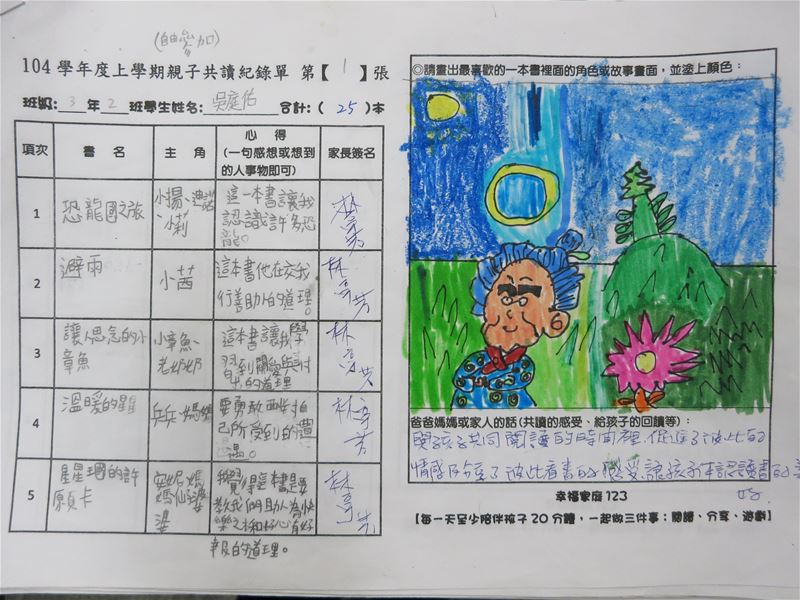 (自由參加)
104 學年度上學期親子共讀紀錄單 第【 1 】張
班級: 3 年 2 班學生姓名: 吳庭佑 合計: ( 25 )本
項次 書 名 主 角 心 得 家長簽名
(一句感想或想到
的人事物即可)
1 恐龍國之旅 小揚、
小莉
這一本書讓我
認識許多恐
龍。
2 避雨 小茜
這本書他在交我
行善助人的道理。
林
3 讓人思念的小
章魚
小章魚、
老奶奶
這本書讓我學
習到關愛與付
出的道理
林
4 溫暖的星 兵兵、媽媽
要勇敢面對自
己所受到的遭
遇。
林
5 星星國的許
願卡
安妮媽
媽仙婆
婆
教我們助人為快
樂之本和好心有好
報的道理。
林
◎請畫出最喜歡的一本書裡面的角色或故事畫面,並塗上顏色:
爸爸媽媽或家人的話(共讀的感受、給孩子的回饋等):
與孩子共同閱讀的時間裡,促進了彼此的
情感及分享了彼此看書的感受讓孩子
幸福家庭 123
【每一天至少陪伴孩子 20 分鐘,一起做三件事:閱讀、分享、遊戲】